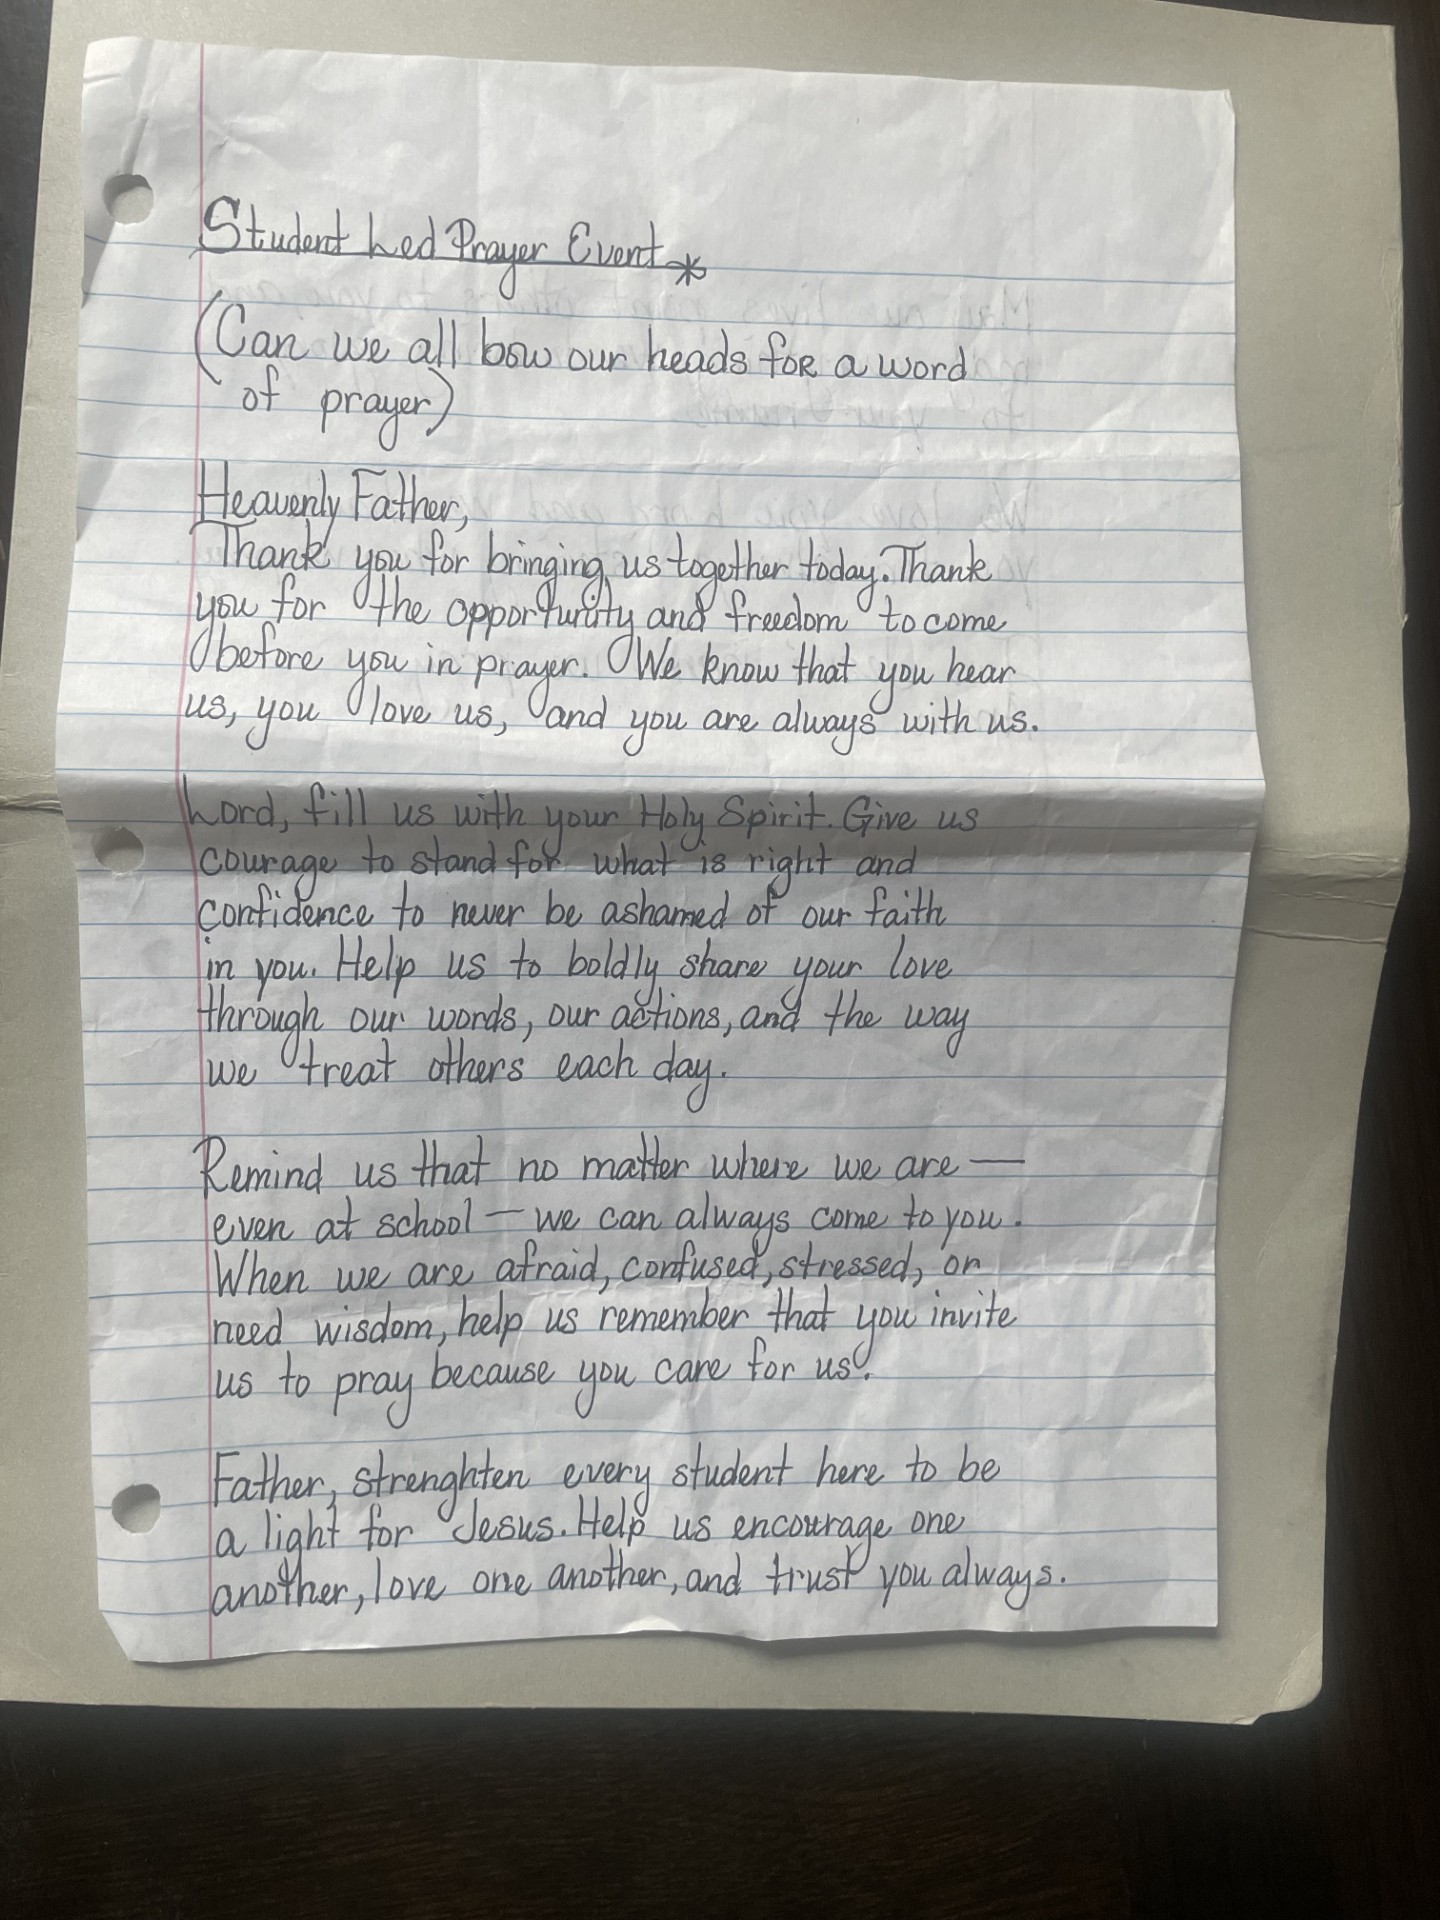 Student Led Prayer Event *
(Can we all bow our heads for a word
of prayer)
Heavenly Father,
Thank you for bringing us together today. Thank
you for the opportunity and freedom to come
before you in prayer. We know that you hear
us, you love us, and you are always with us.
Lord, fill us with your Holy Spirit. Give us
courage to stand for what is right and
confidence to never be ashamed of our faith
in you. Help us to boldly share your love
through our words, our actions, and the way
we treat others each day.
Remind us that no matter where we are —
even at school — we can always come to you.
When we are afraid, confused, stressed, or
need wisdom, help us remember that you invite
us to pray because you care for us.
Father, strenghten every student here to be
a light for Jesus. Help us encourage one
another, love one another, and trust you always.